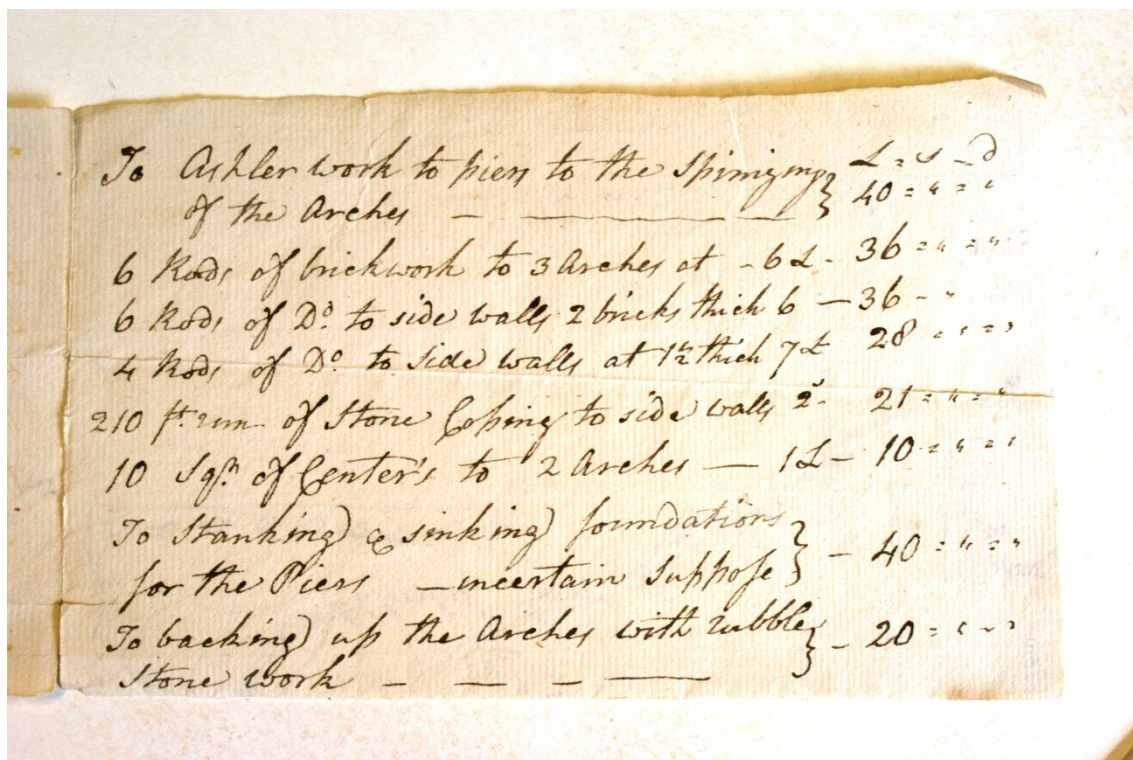 To Ashler work to piers to the Springing } £ = s = d
of the Arches — ——— } 40 = " = "
6 Rods of brickwork to 3 Arches at - 6£ - 36 = " = "
6 Rods of Do. to side walls 2 bricks thick 6 — 36 - "
4 Rods of Do. to side walls at 1½ thick 7£ 28 = " = "
210 ft. run of Stone Coping to side walls 2s. 21 = " = "
10 Sqrs. of Center's to 2 Arches — 1£ - 10 = " = "
To Stanking & sinking foundations
for the Piers — uncertain Suppose } - 40 = " = "
To backing up the Arches with rubble } - 20 = " = "
Stone work — — — ——